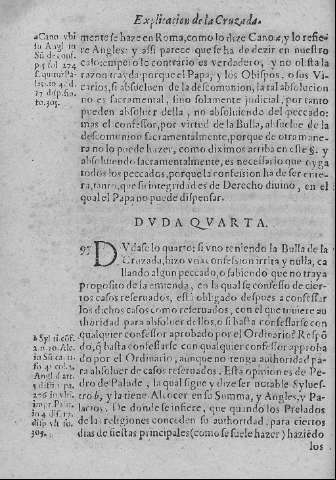 Explicacion de la Cruzada.
mente se haze en Roma, como lo dize Cano a, y lo refie-
re Angles: y assi parece que se ha de dezir en nuestro
caso: empero lo contrario es verdadero, y no obsta la
razon trayda porque el Papa, y los Obispos, o sus Vi-
carios, si absueluen de la descomunion, la tal absolucion
no es sacramental, sino solamente judicial, por tanto
pueden absoluer della, no absoluiendo del peccado:
mas el confessor, por virtud de la Bulla, absuelue de la
descomunion sacramentalmente, porque de otra mane-
ra no lo puede hazer, como diximos arriba en este §. y
absoluiendo sacramentalmente, es necessario que oyga
todos los peccados, porque la confession ha de ser ente-
ra, tanto, que su integridad es de Derecho diuino, en el
qual el Papa no puede dispensar.
a Cano vbi
su Angl. in
Su. de conf.
305.
DVDA QVARTA.
95 DVdase lo quarto; si vno teniendo la Bulla de la
Cruzada, hizo vna confession irrita y nulla, ca
llando algun peccado, o sabiendo que no traya
proposito de la emienda, en la qual se confesso de cier-
tos casos reseruados, està obligado despues a confessar
los dichos casos como reseruados, con el que tuuiere au
thoridad para absoluer dellos, o si basta confessarse con
qualquier confessor aprobado por el Ordinario? Respõ
do, q̃ basta confessarse con qualquier confessor aproba
do por el Ordinario, aunque no tenga authoridad pa-
ra absoluer de casos reseruados. Esta opinion es de Pe-
dro de Palude, la qual sigue y dize ser notable Sylues-
tro b, y la tiene Alcocer en su Summa, y Angles, y Pa-
lacios. De donde se infiere, que quando los Prelados
de las religiones conceden su authoridad, para ciertos
dias de fiestas principales (como se suele hazer) haziẽdo
b Syl. ti cõf.
1. n 20. Alc.
in Sũ ca.
305.
los